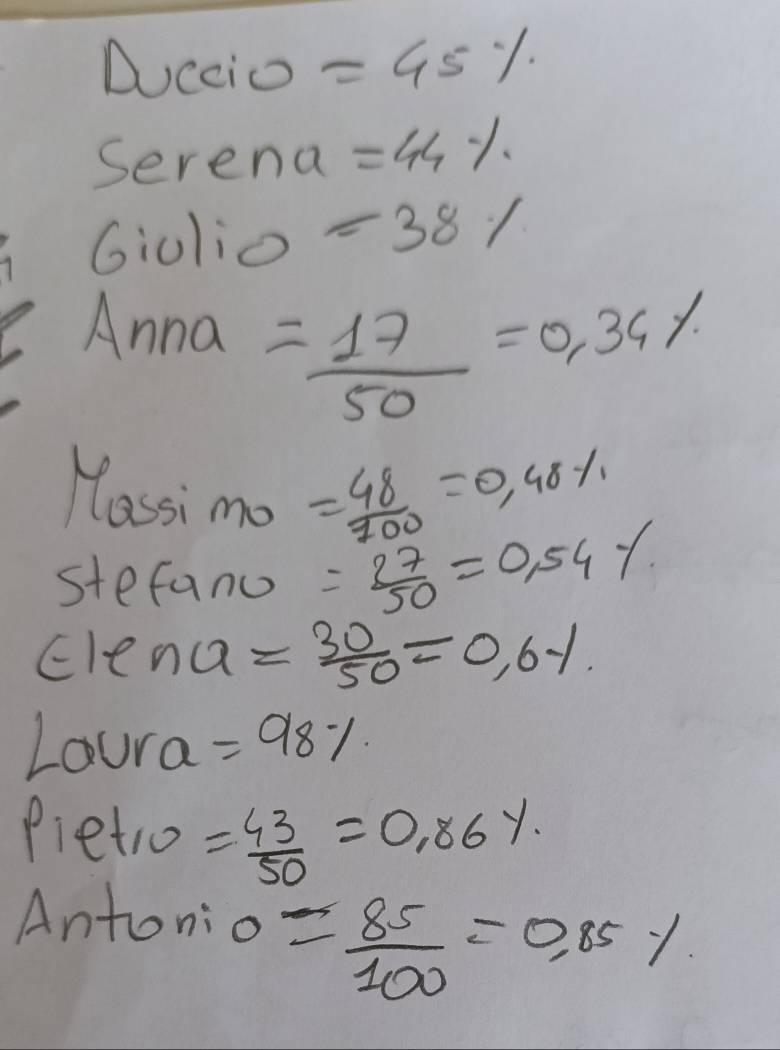 Duccio = 45 %.
Serena = 44 %.
Giulio = 38 %
Anna = 17/50 = 0,34 %.
Massimo = 48/100 = 0,48 %.
Stefano = 27/50 = 0,54 %.
Elena = 30/50 = 0,6 %.
Laura = 98 %.
Pietro = 43/50 = 0,86 %.
Antonio = 85/100 = 0,85 %.